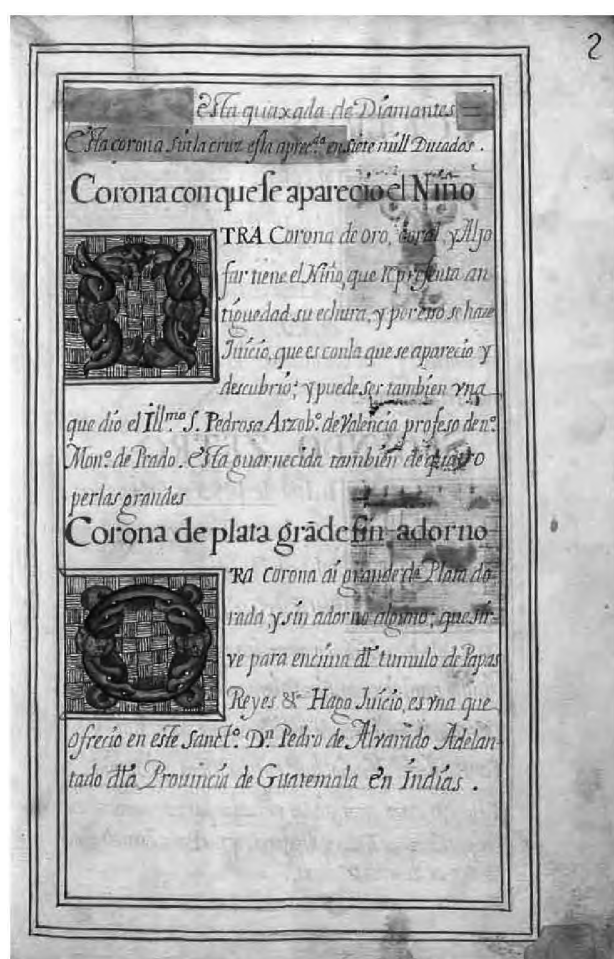 2
Esta quaxada de Diamantes
Esta corona sin la cruz esta aprec.da en siete mill Ducados.
Corona con que se aparecio el Nino
OTRA Corona de oro, coral, y Aljo
far tiene el Niño, que representa an
tiguedad su echura, y por esso se haze
Juicio, que es con la que se aparecio y
descubrio; y puede ser tambien vna
que dio el Ill.mo S. Pedrosa Arzob.o de Valencia profeso de n.o
Mon.o de Prado. Esta guarnecida tambien de quatro
perlas grandes
Corona de plata grãde sin adorno
OTRA Corona ai grande de Plata do-
rada y sin adorno alguno; que sir-
ve para encima dl tumulo de Papas
Reyes &c Hago Juicio, es vna que
ofrecio en este Sanct.o D.n Pedro de Alvarado Adelan-
tado dla Provincia de Guatemala en Indias.